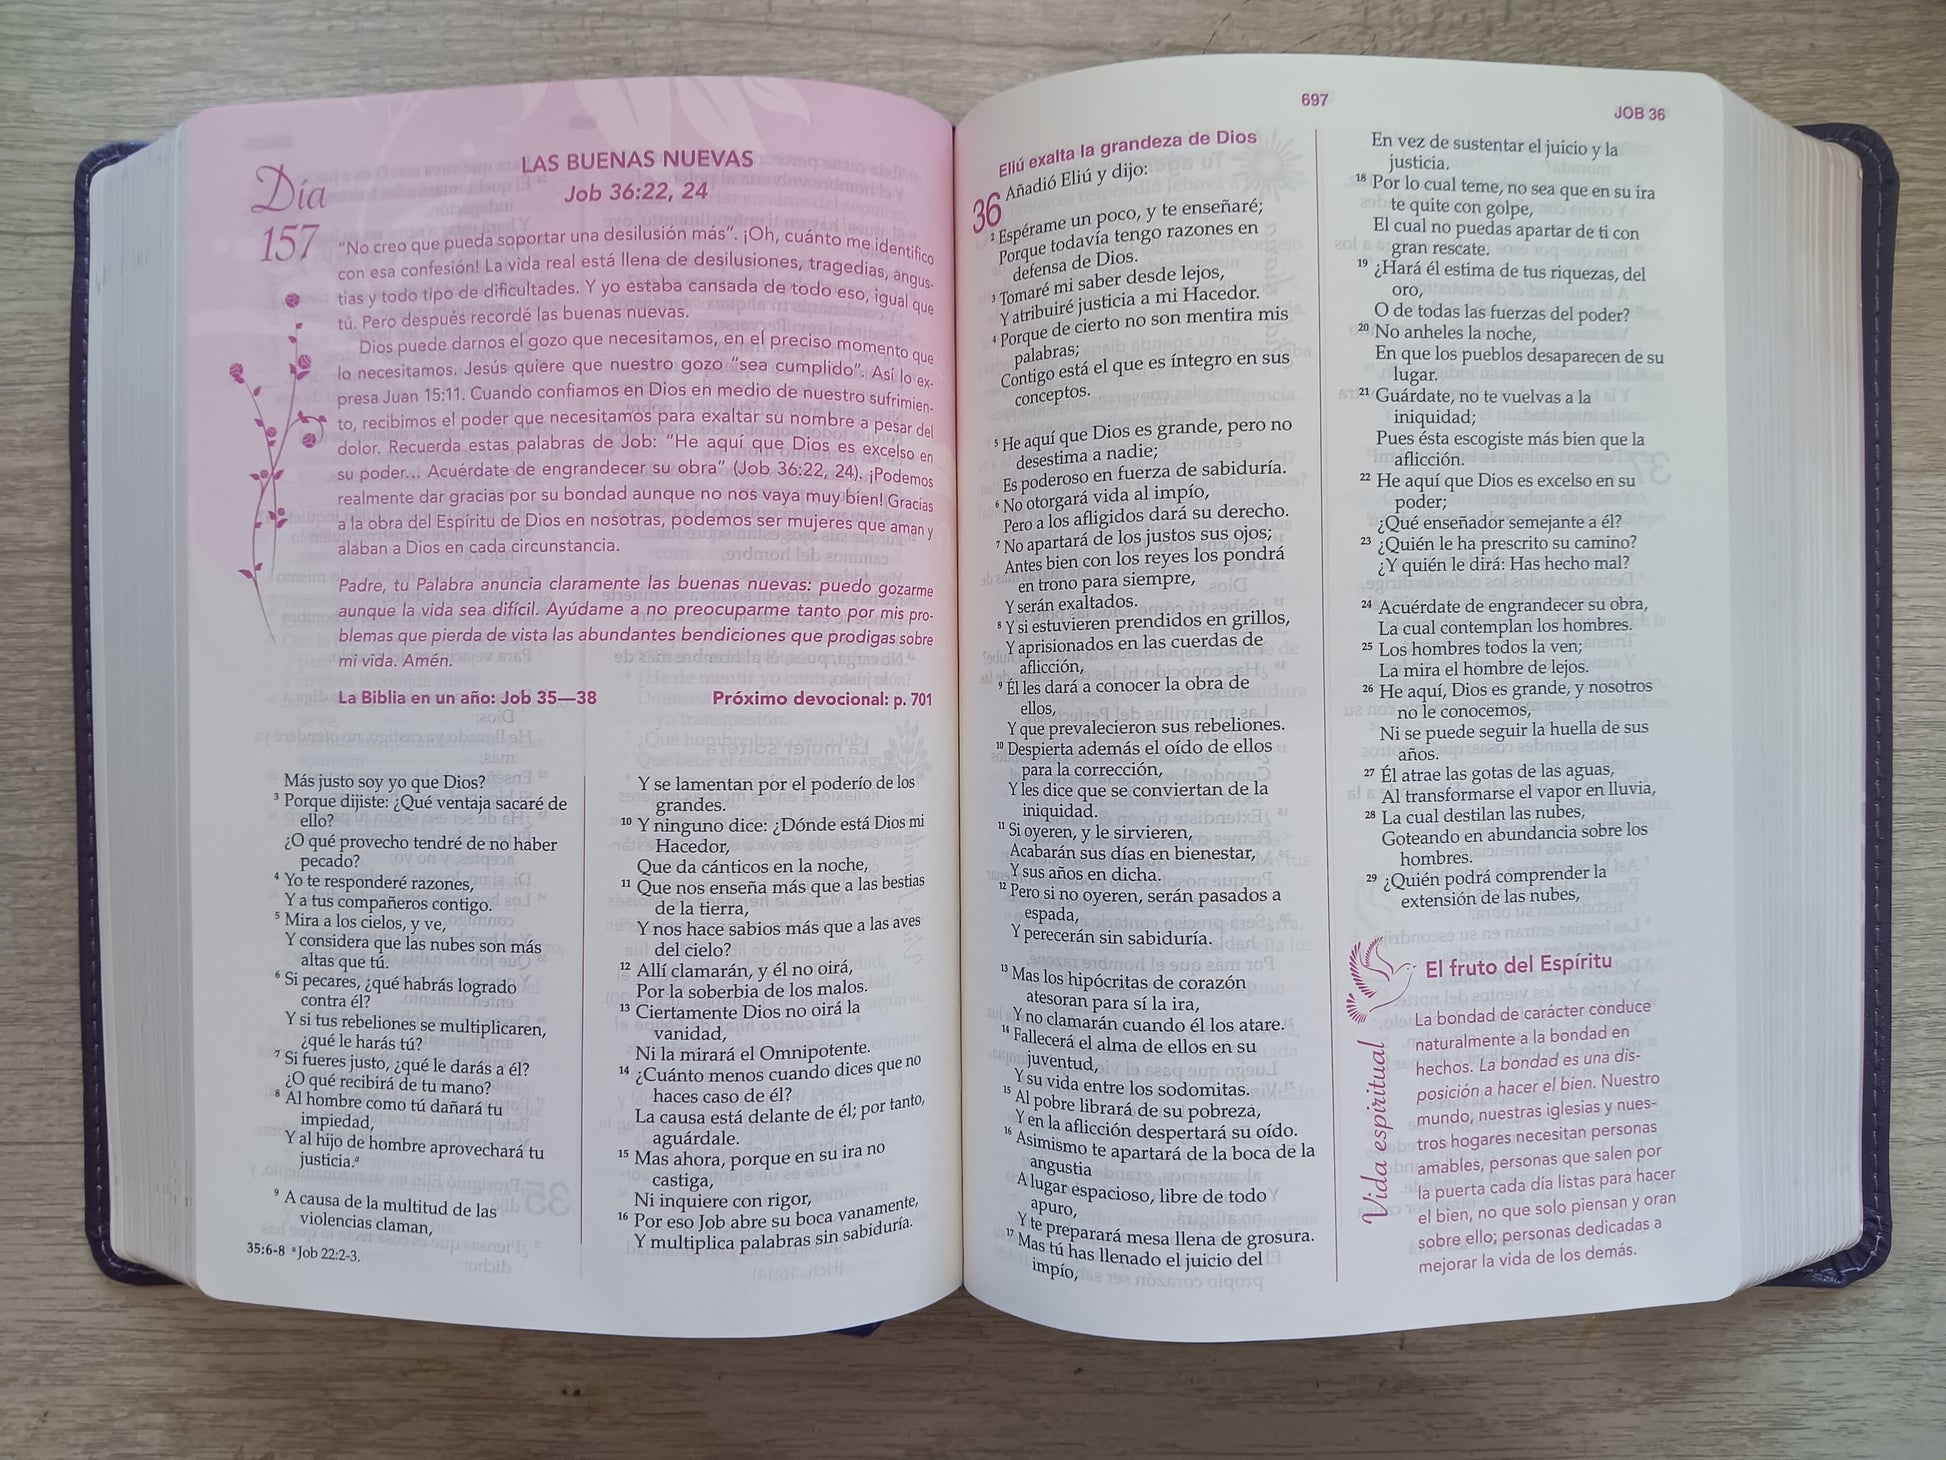 Día
157
LAS BUENAS NUEVAS
Job 36:22, 24
“No creo que pueda soportar una desilusión más”. ¡Oh, cuánto me identifico
con esa confesión! La vida real está llena de desilusiones, tragedias, angus-
tias y todo tipo de dificultades. Y yo estaba cansada de todo eso, igual que
tú. Pero después recordé las buenas nuevas.
Dios puede darnos el gozo que necesitamos, en el preciso momento que
lo necesitamos. Jesús quiere que nuestro gozo “sea cumplido”. Así lo ex-
presa Juan 15:11. Cuando confiamos en Dios en medio de nuestro sufrimien-
to, recibimos el poder que necesitamos para exaltar su nombre a pesar del
dolor. Recuerda estas palabras de Job: “He aquí que Dios es excelso en
su poder... Acuérdate de engrandecer su obra” (Job 36:22, 24). ¡Podemos
realmente dar gracias por su bondad aunque no nos vaya muy bien! Gracias
a la obra del Espíritu de Dios en nosotras, podemos ser mujeres que aman y
alaban a Dios en cada circunstancia.
Padre, tu Palabra anuncia claramente las buenas nuevas: puedo gozarme
aunque la vida sea difícil. Ayúdame a no preocuparme tanto por mis pro-
blemas que pierda de vista las abundantes bendiciones que prodigas sobre
mi vida. Amén.
La Biblia en un año: Job 35—38 Próximo devocional: p. 701
Más justo soy yo que Dios?
3 Porque dijiste: ¿Qué ventaja sacaré de
ello?
¿O qué provecho tendré de no haber
pecado?
4 Yo te responderé razones,
Y a tus compañeros contigo.
5 Mira a los cielos, y ve,
Y considera que las nubes son más
altas que tú.
6 Si pecares, ¿qué habrás logrado
contra él?
Y si tus rebeliones se multiplicaren,
¿qué le harás tú?
7 Si fueres justo, ¿qué le darás a él?
¿O qué recibirá de tu mano?
8 Al hombre como tú dañará tu
impiedad,
Y al hijo de hombre aprovechará tu
justicia.a
9 A causa de la multitud de las
violencias claman,
35:6-8 a Job 22:2-3.
Y se lamentan por el poderío de los
grandes.
10 Y ninguno dice: ¿Dónde está Dios mi
Hacedor,
Que da cánticos en la noche,
11 Que nos enseña más que a las bestias
de la tierra,
Y nos hace sabios más que a las aves
del cielo?
12 Allí clamarán, y él no oirá,
Por la soberbia de los malos.
13 Ciertamente Dios no oirá la
vanidad,
Ni la mirará el Omnipotente.
14 ¿Cuánto menos cuando dices que no
haces caso de él?
La causa está delante de él; por tanto,
aguárdale.
15 Mas ahora, porque en su ira no
castiga,
Ni inquiere con rigor,
16 Por eso Job abre su boca vanamente,
Y multiplica palabras sin sabiduría.
697
JOB 36
Eliú exalta la grandeza de Dios
36 Añadió Eliú y dijo:
2 Espérame un poco, y te enseñaré;
Porque todavía tengo razones en
defensa de Dios.
3 Tomaré mi saber desde lejos,
Y atribuiré justicia a mi Hacedor.
4 Porque de cierto no son mentira mis
palabras;
Contigo está el que es íntegro en sus
conceptos.
5 He aquí que Dios es grande, pero no
desestima a nadie;
Es poderoso en fuerza de sabiduría.
6 No otorgará vida al impío,
Pero a los afligidos dará su derecho.
7 No apartará de los justos sus ojos;
Antes bien con los reyes los pondrá
en trono para siempre,
Y serán exaltados.
8 Y si estuvieren prendidos en grillos,
Y aprisionados en las cuerdas de
aflicción,
9 Él les dará a conocer la obra de
ellos,
Y que prevalecieron sus rebeliones.
10 Despierta además el oído de ellos
para la corrección,
Y les dice que se conviertan de la
iniquidad.
11 Si oyeren, y le sirvieren,
Acabarán sus días en bienestar,
Y sus años en dicha.
12 Pero si no oyeren, serán pasados a
espada,
Y perecerán sin sabiduría.
13 Mas los hipócritas de corazón
atesoran para sí la ira,
Y no clamarán cuando él los atare.
14 Fallecerá el alma de ellos en su
juventud,
Y su vida entre los sodomitas.
15 Al pobre librará de su pobreza,
Y en la aflicción despertará su oído.
16 Asimismo te apartará de la boca de la
angustia
A lugar espacioso, libre de todo
apuro,
Y te preparará mesa llena de grosura.
17 Mas tú has llenado el juicio del
impío,
En vez de sustentar el juicio y la
justicia.
18 Por lo cual teme, no sea que en su ira
te quite con golpe,
El cual no puedas apartar de ti con
gran rescate.
19 ¿Hará él estima de tus riquezas, del
oro,
O de todas las fuerzas del poder?
20 No anheles la noche,
En que los pueblos desaparecen de su
lugar.
21 Guárdate, no te vuelvas a la
iniquidad;
Pues ésta escogiste más bien que la
aflicción.
22 He aquí que Dios es excelso en su
poder;
¿Qué enseñador semejante a él?
23 ¿Quién le ha prescrito su camino?
¿Y quién le dirá: Has hecho mal?
24 Acuérdate de engrandecer su obra,
La cual contemplan los hombres.
25 Los hombres todos la ven;
La mira el hombre de lejos.
26 He aquí, Dios es grande, y nosotros
no le conocemos,
Ni se puede seguir la huella de sus
años.
27 Él atrae las gotas de las aguas,
Al transformarse el vapor en lluvia,
28 La cual destilan las nubes,
Goteando en abundancia sobre los
hombres.
29 ¿Quién podrá comprender la
extensión de las nubes,
Vida espiritual
El fruto del Espíritu
La bondad de carácter conduce
naturalmente a la bondad en
hechos. La bondad es una dis-
posición a hacer el bien. Nuestro
mundo, nuestras iglesias y nues-
tros hogares necesitan personas
amables, personas que salen por
la puerta cada día listas para hacer
el bien, no que solo piensan y oran
sobre ello; personas dedicadas a
mejorar la vida de los demás.